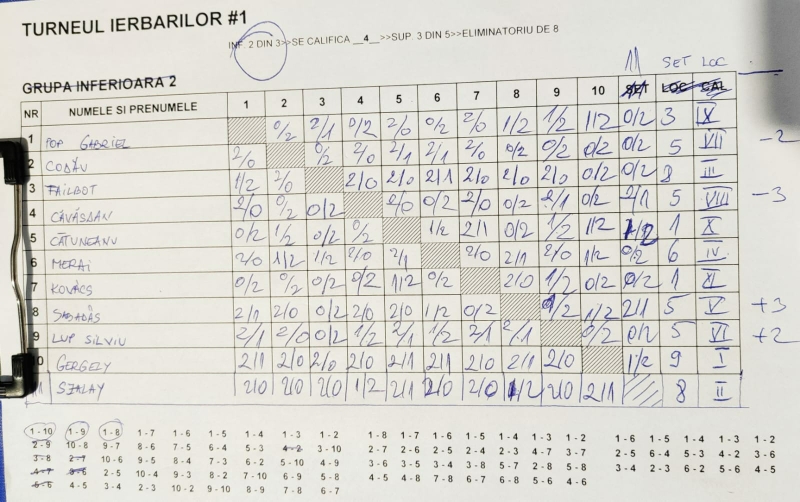 TURNEUL IERBARILOR #1
INF. 2 DIN 3>>SE CALIFICA __4__>>SUP. 3 DIN 5>>ELIMINATORIU DE 8
11 SET LOC
GRUPA INFERIOARA 2
NR NUMELE SI PRENUMELE 1 2 3 4 5 6 7 8 9 10 SET LOC CAL
1 POP GABRIEL 0/2 2/1 0/2 2/0 0/2 2/0 1/2 1/2 1/2 0/2 3 IX
2 CODĂU 2/0 0/2 2/0 2/1 2/1 2/0 0/2 0/2 0/2 0/2 5 VII -2
3 FAILBOT 1/2 2/0 2/0 2/0 2/1 2/0 2/0 2/0 0/2 0/2 8 III
4 CĂVĂSDAN 2/0 0/2 0/2 2/0 0/2 2/0 0/2 2/1 0/2 2/1 5 VIII -3
5 CĂTUNEANU 0/2 1/2 0/2 0/2 1/2 2/1 0/2 1/2 1/2 1/2 1 X
6 MERAI 2/0 1/2 1/2 2/0 2/1 2/0 2/1 2/0 1/2 0/2 6 IV
7 KOVÁCS 0/2 0/2 0/2 0/2 1/2 0/2 2/0 1/2 0/2 0/2 1 XI
8 2/1 2/0 0/2 2/0 2/0 1/2 0/2 1/2 1/2 2/1 5 V +3
9 LUP SILVIU 2/1 2/0 0/2 1/2 2/1 1/2 2/1 2/1 0/2 0/2 5 VI +2
10 GERGELY 2/1 2/0 2/0 2/0 2/1 2/1 2/0 2/1 2/0 1/2 9 I
11 SZALAY 2/0 2/0 2/0 1/2 2/1 2/0 2/0 1/2 2/0 2/1 8 II
1 - 10 1 - 9 1 - 8 1 - 7 1 - 6 1 - 5 1 - 4 1 - 3 1 - 2 1 - 8 1 - 7 1 - 6 1 - 5 1 - 4 1 - 3 1 - 2 1 - 6 1 - 5 1 - 4 1 - 3 1 - 2
2 - 9 10 - 8 9 - 7 8 - 6 7 - 5 6 - 4 5 - 3 4 - 2 3 - 10 2 - 7 2 - 6 2 - 5 2 - 4 2 - 3 3 - 8 3 - 7 2 - 5 2 - 6 2 - 3 2 - 4 3 - 6
3 - 8 2 - 7 10 - 6 9 - 5 8 - 4 7 - 3 6 - 2 5 - 10 4 - 9 3 - 6 3 - 5 3 - 4 5 - 8 5 - 7 2 - 8 5 - 8 3 - 4 2 - 3 6 - 2 4 - 5
4 - 7 3 - 6 2 - 5 10 - 4 9 - 3 8 - 2 7 - 10 6 - 9 5 - 8 4 - 5 4 - 8 7 - 8 6 - 7 6 - 8 5 - 6 4 - 6
5 - 6 4 - 5 3 - 4 2 - 3 10 - 2 9 - 10 8 - 9 7 - 8 6 - 7